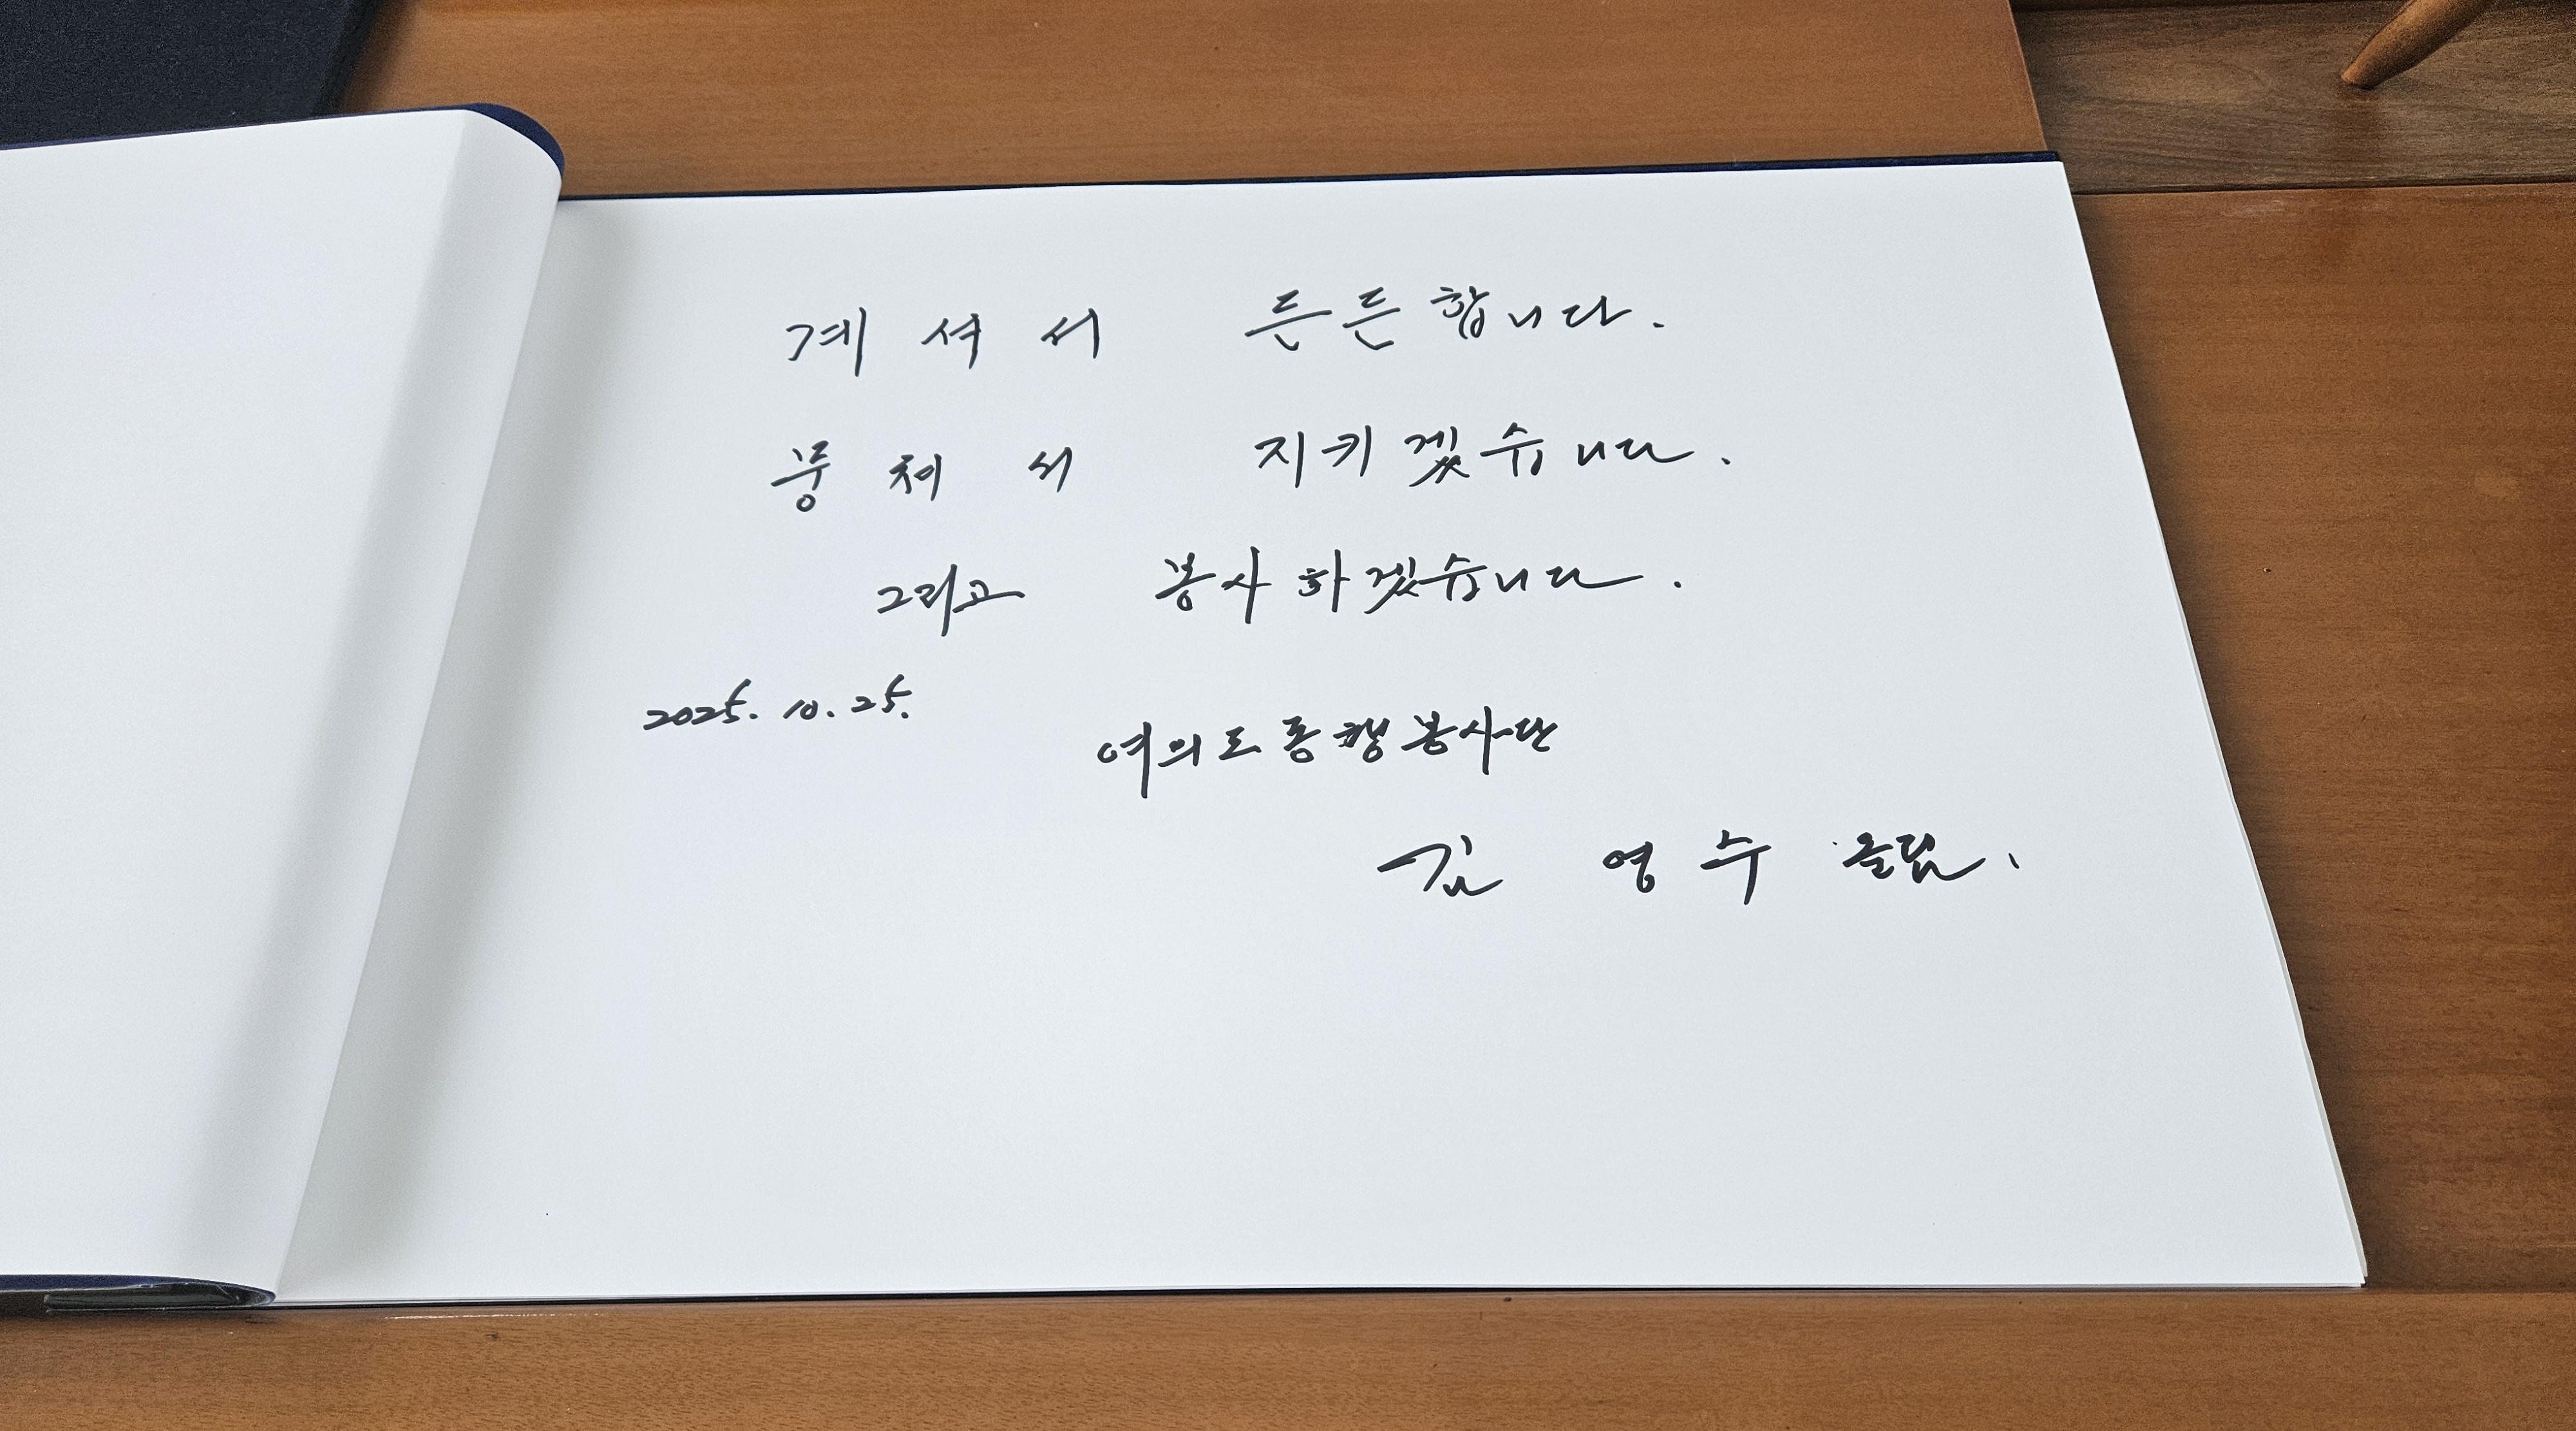 계셔서 든든합니다.
뭉쳐서 지키겠습니다.
그리고 봉사하겠습니다.
2025. 10. 25.
여의도동행봉사단
김 영수 올림.